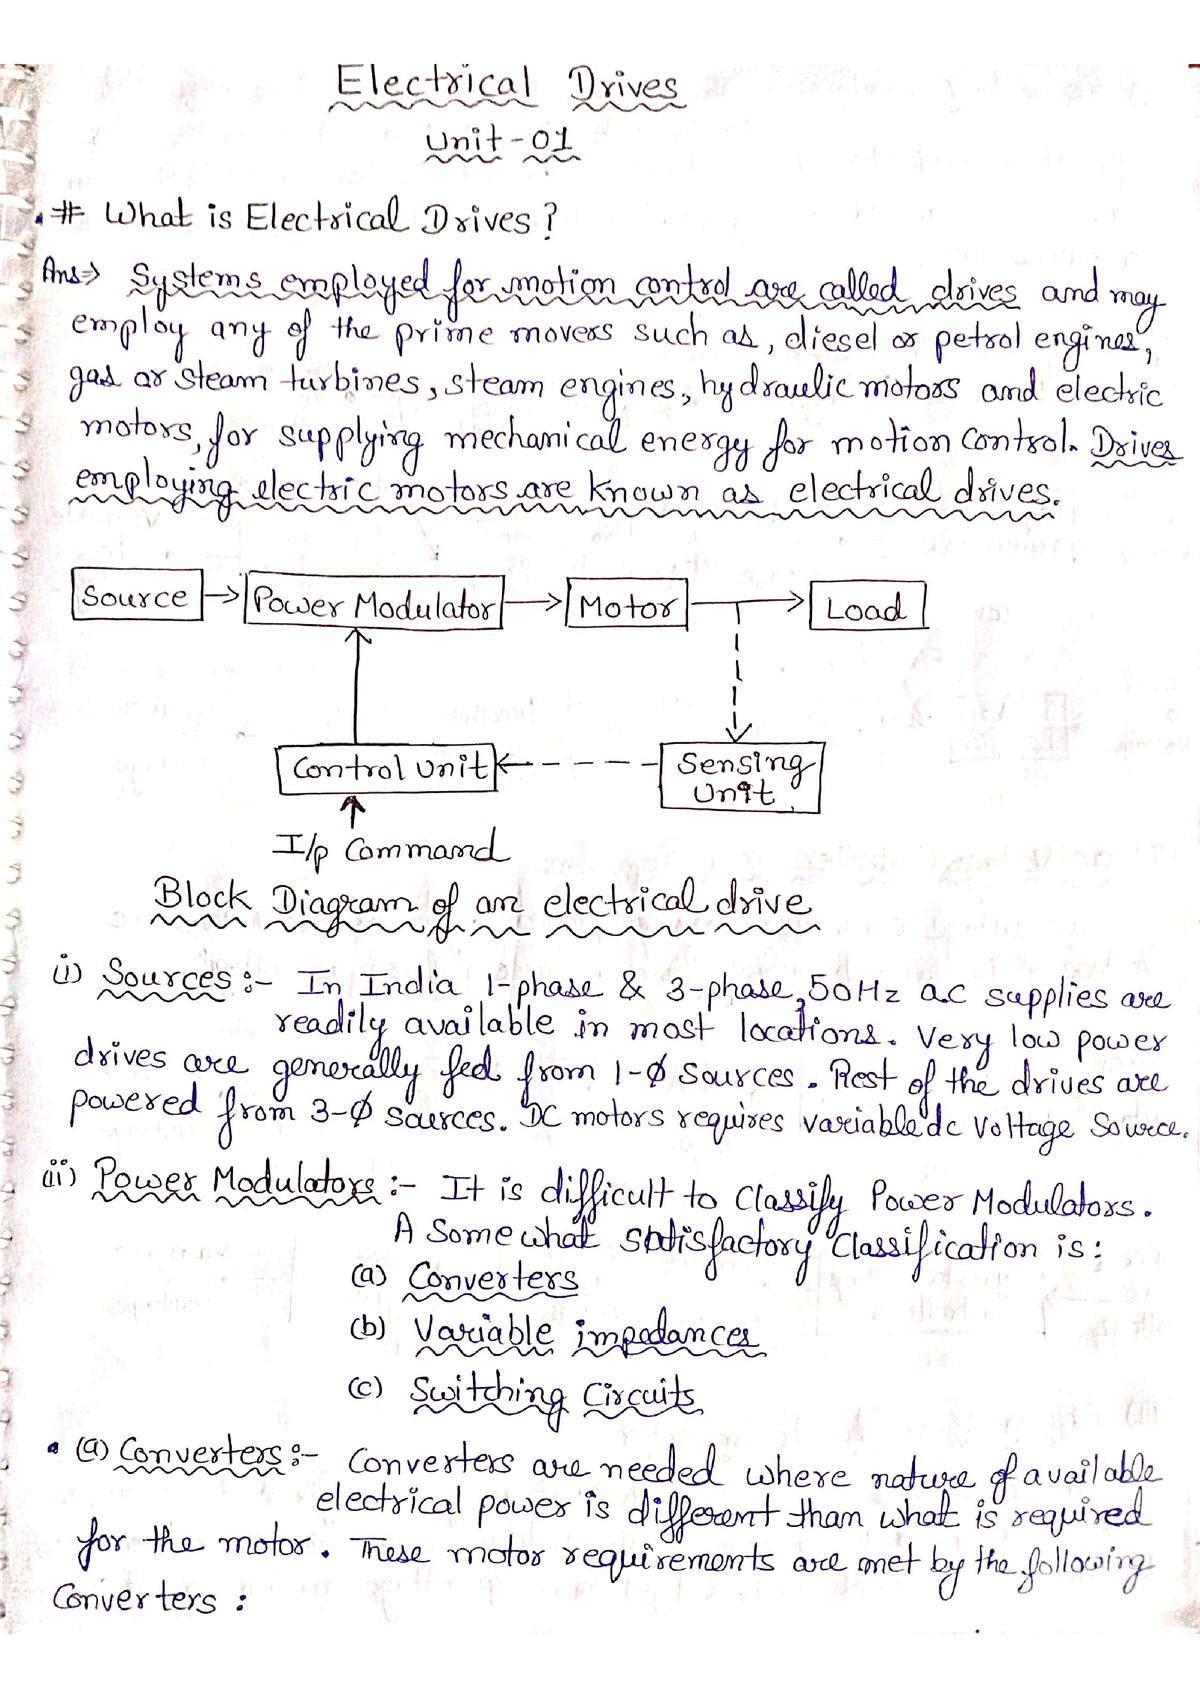 Electrical Drives
Unit-01
# What is Electrical Drives?
Ans⇒ Systems employed for motion control are called drives and may
employ any of the prime movers such as, diesel or petrol engines,
gas or steam turbines, steam engines, hydraulic motors and electric
motors, for supplying mechanical energy for motion control. Drives
employing electric motors are known as electrical drives.
Source
Power Modulator
Motor
Load
Control Unit
Sensing
Unit
I/p Command
Block Diagram of an electrical drive
i) Sources :- In India 1-phase & 3-phase, 50Hz a.c supplies are
readily available in most locations. Very low power
drives are generally fed from 1-Ø Sources. Rest of the drives are
powered from 3-Ø sources. DC motors requires variable dc voltage Source.
ii) Power Modulators :- It is difficult to Classify Power Modulators.
A Somewhat satisfactory Classification is:
(a) Converters
(b) Variable impedances
(c) Switching Circuits
• (a) Converters :- Converters are needed where nature of available
electrical power is different than what is required
for the motor. These motor requirements are met by the following
Converters :